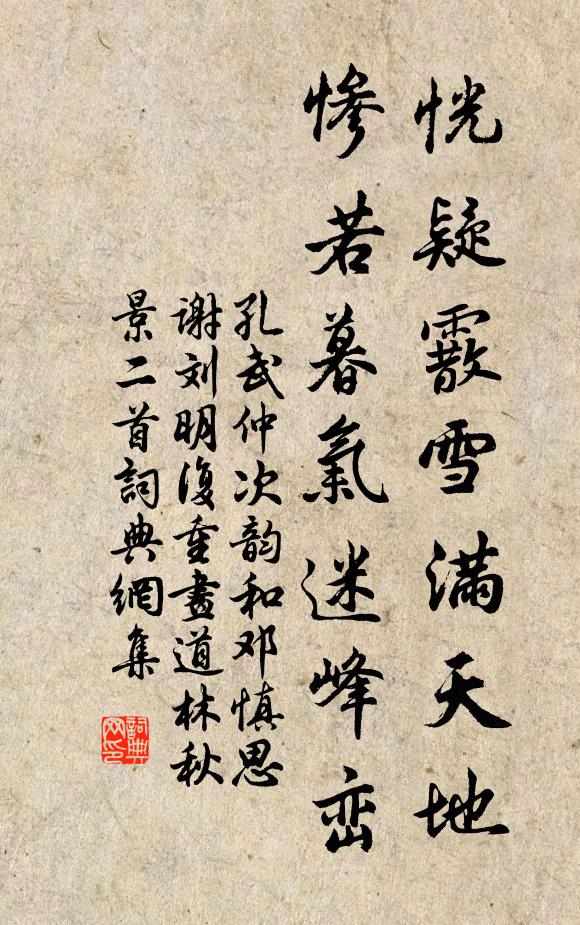 恍疑霰雪满天地
惨若暮氣迷峰峦
孔武仲次韵和邓慎思
谢刘明復重畫道林秋
景二首詞典網集
詞典网印